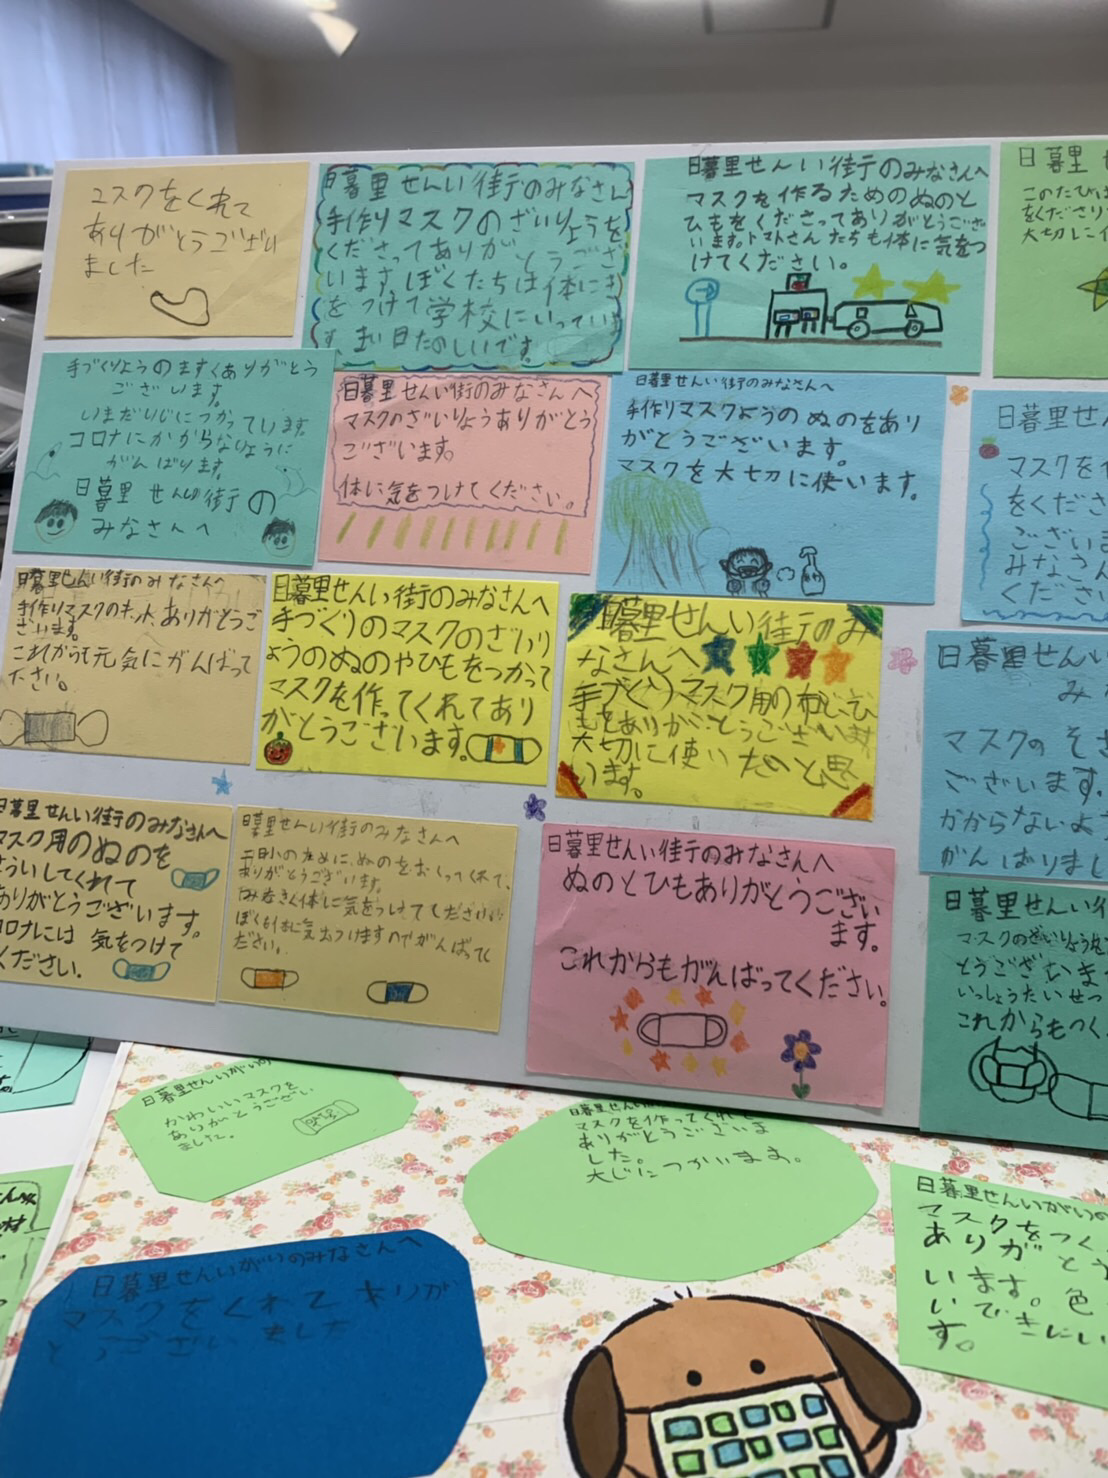 マスクをくれて
ありがとうござい
ました
日暮里せんい街のみなさん
手作りマスクのざいりょうを
くださってありがとうござ
います。ぼくたちは体にき
をつけて学校にいってい
す まい日たのしいです。
日暮里せんい街のみなさんへ
マスクを作るためのぬのと
ひもをくださってありがとうござ
います。トマトさんたちも体に気をつ
けてください。
日暮里
このたびは
をくださり
大切に
手づくりようのますくありがとう
ございます。
いまだいじにつかっています
コロナにかからないように
がんばります。
日暮里せんい街の
みなさんへ
日暮里せんい街のみなさんへ
マスクのざいりょうありがとう
ございます。
体に気をつけてください。
日暮里せんい街のみなさんへ
手作りマスクようのぬのをあり
がとうございます。
マスクを大切に使います。
日暮里せん
マスクを
をくださ
ございま
みなさん
ください
日暮里せんい街のみなさんへ
手作りマスクのキット、ありがとうご
ざいます。
これからも元気にがんばって
ださい。
日暮里せんい街のみなさんへ
手づくりのマスクのざいり
ょうのぬのやひもをつかって
マスクを作ってくれてあり
がとうございます。
日暮里せんい街のみ
なさんへ
手づくりマスク用の布とひ
もをありがとうございます
大切に使いたいと思
います。
日暮里せんい
み
マスクの
ございます。
かからないよう
がんばりまし
日暮里せんい街のみなさんへ
マスク用のぬのを
してくれて
ありがとうございます。
コロナには気をつけて
ください。
日暮里せんい街のみなさんへ
ために、ぬのを くれて、
ありがとうございます。
体に気をつけてください
ぼくも体に気をつけますのでがんばって
ださい。
日暮里せんい街のみなさんへ
ぬのとひもありがとうござい
ます。
これからもがんばってください。
日暮里せんい
マスクのざいりょうを
とうございま
いっしょうたいせつ
これからもつく
日暮里せんいがい
かわいいマスクを
ありがとうござい
ました。
日暮里せんい
マスクを作ってくれて
ありがとうございま
した。
大じにつかいます。
日暮里せんいがいの
マスクをつく
ありがとう
います。色
いで きにい
す。
日暮里せんいがいのみなさんへ
マスクをくれてありが
とうございました